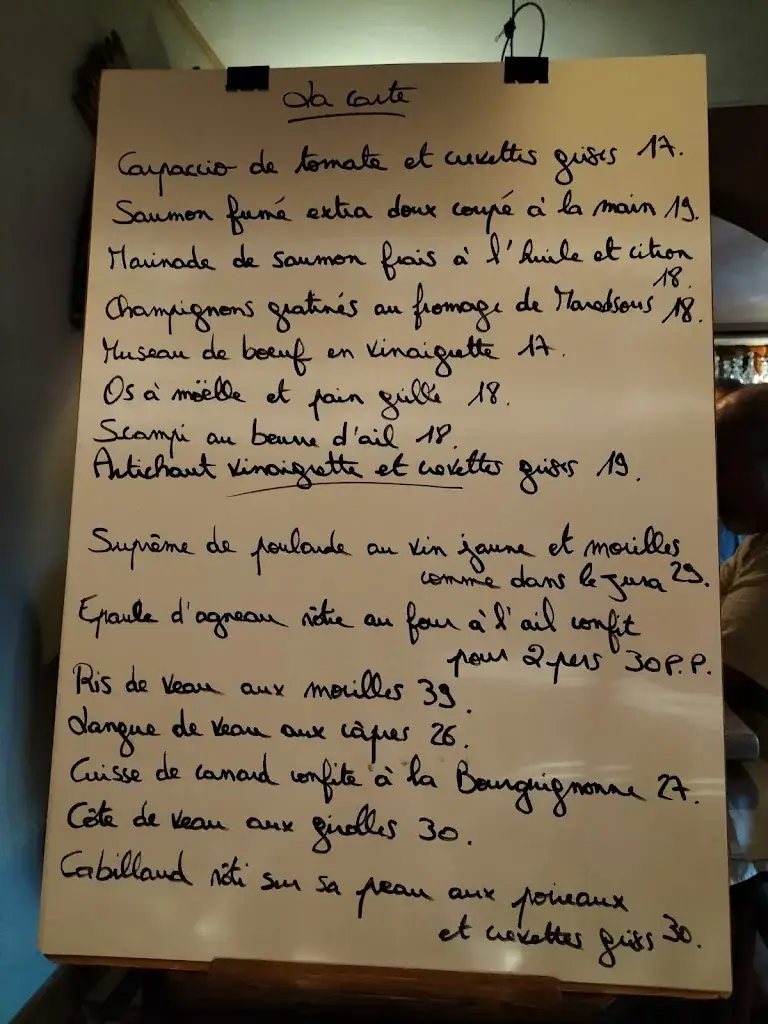 La carte
Carpaccio de tomate et crevettes grises 17.
Saumon fumé extra doux coupé à la main 19.
Marinade de saumon frais à l'huile et citron
18.
Champignons gratinés au fromage de Maredsous 18.
Museau de boeuf en vinaigrette 17.
Os à moëlle et pain grillé 18.
Scampi au beurre d'ail 18.
Artichaut vinaigrette et crevettes grises 19.
Suprême de poularde au vin jaune et morilles
comme dans le Jura 29.
Epaule d'agneau rôtie au four à l'ail confit
pour 2 pers 30 P.P.
Ris de veau aux morilles 39.
Langue de veau aux câpres 26.
Cuisse de canard confite à la Bourguignonne 27.
Côte de veau aux girolles 30.
Cabillaud rôti sur sa peau aux poireaux
et crevettes grises 30.